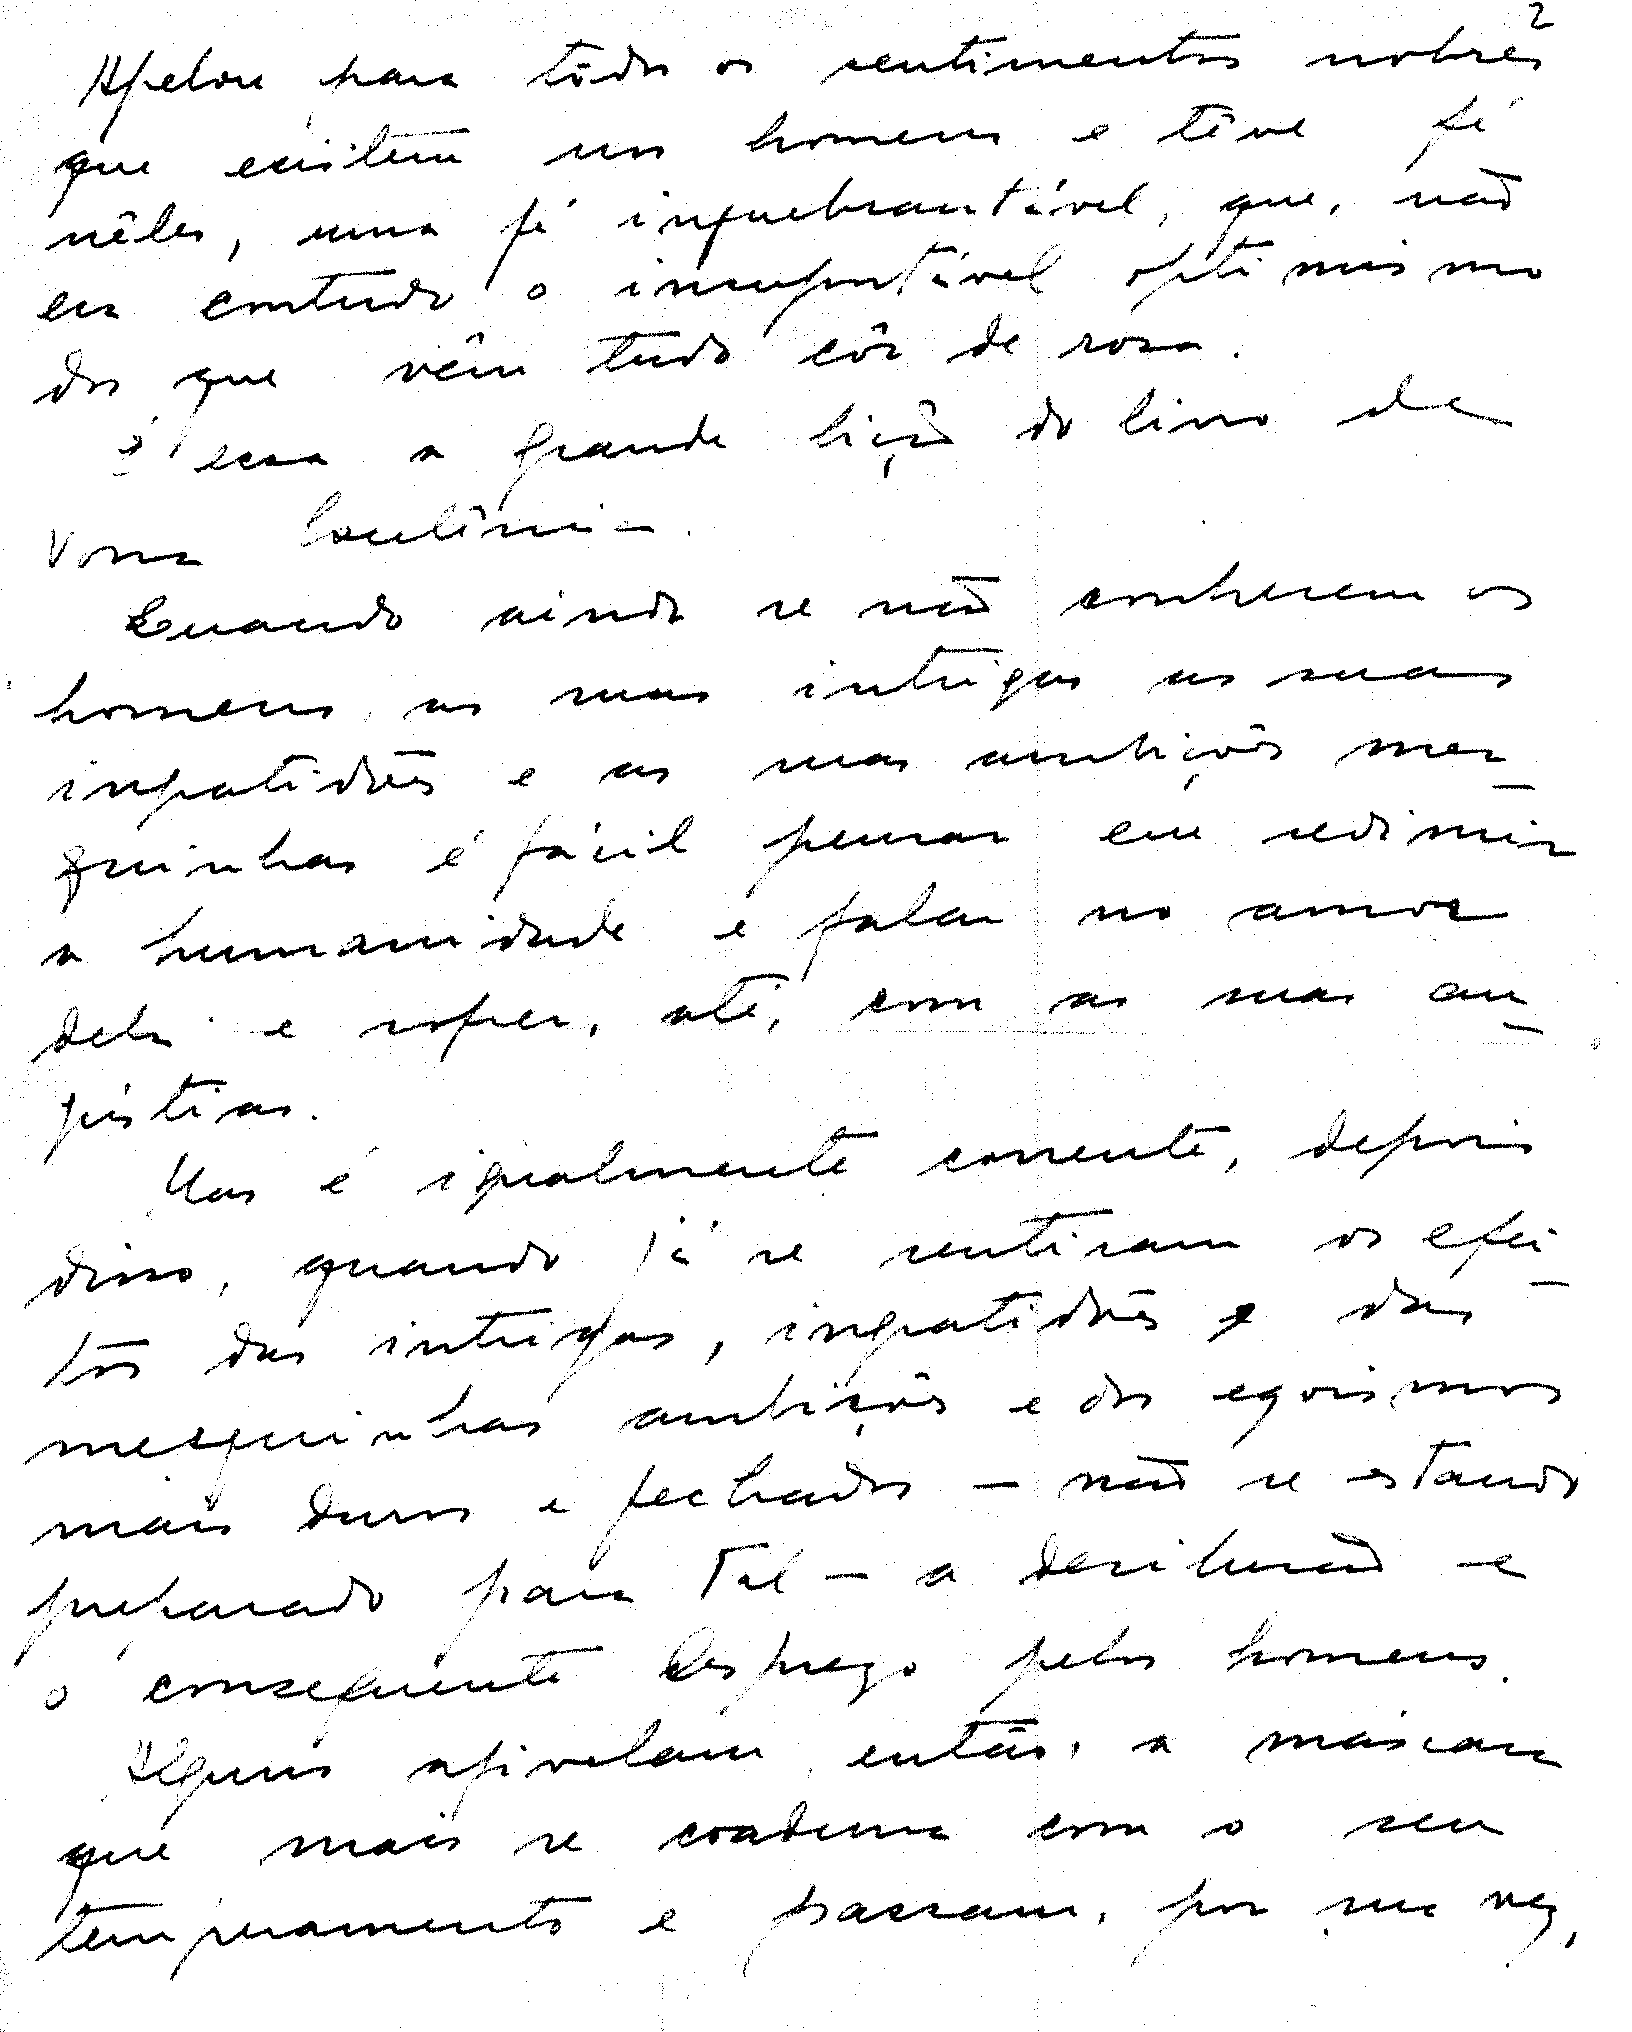 2
Apelou para todos os sentimentos nobres
que existem nos homens e têve fé
nêles, uma fé inquebrantável, que, não
era contudo o insuportável optimismo
dos que vêm tudo côr de rosa.
É essa a grande lição do livro de
Vossa Excelência.
Quando ainda se não conhecem os
homens, as suas intrigas as suas
ingratidões e as suas ambições mes-
quinhas é fácil pensar em redimir
a humanidade e falar no amor
dela e sofrer, até, com as suas an-
gústias.
Mas é igualmente corrente, depois
disso, quando já se sentiram os efei-
tos das intrigas, ingratidões e das
mesquinhas ambições e dos egoismos
mais duros e fechados — não se estando
preparado para tal — a desilusão e
o consequente desprezo pelos homens.
Alguns afivelam, então, a máscara
que mais se coaduna com o seu
temperamento e passam, por sua vez,